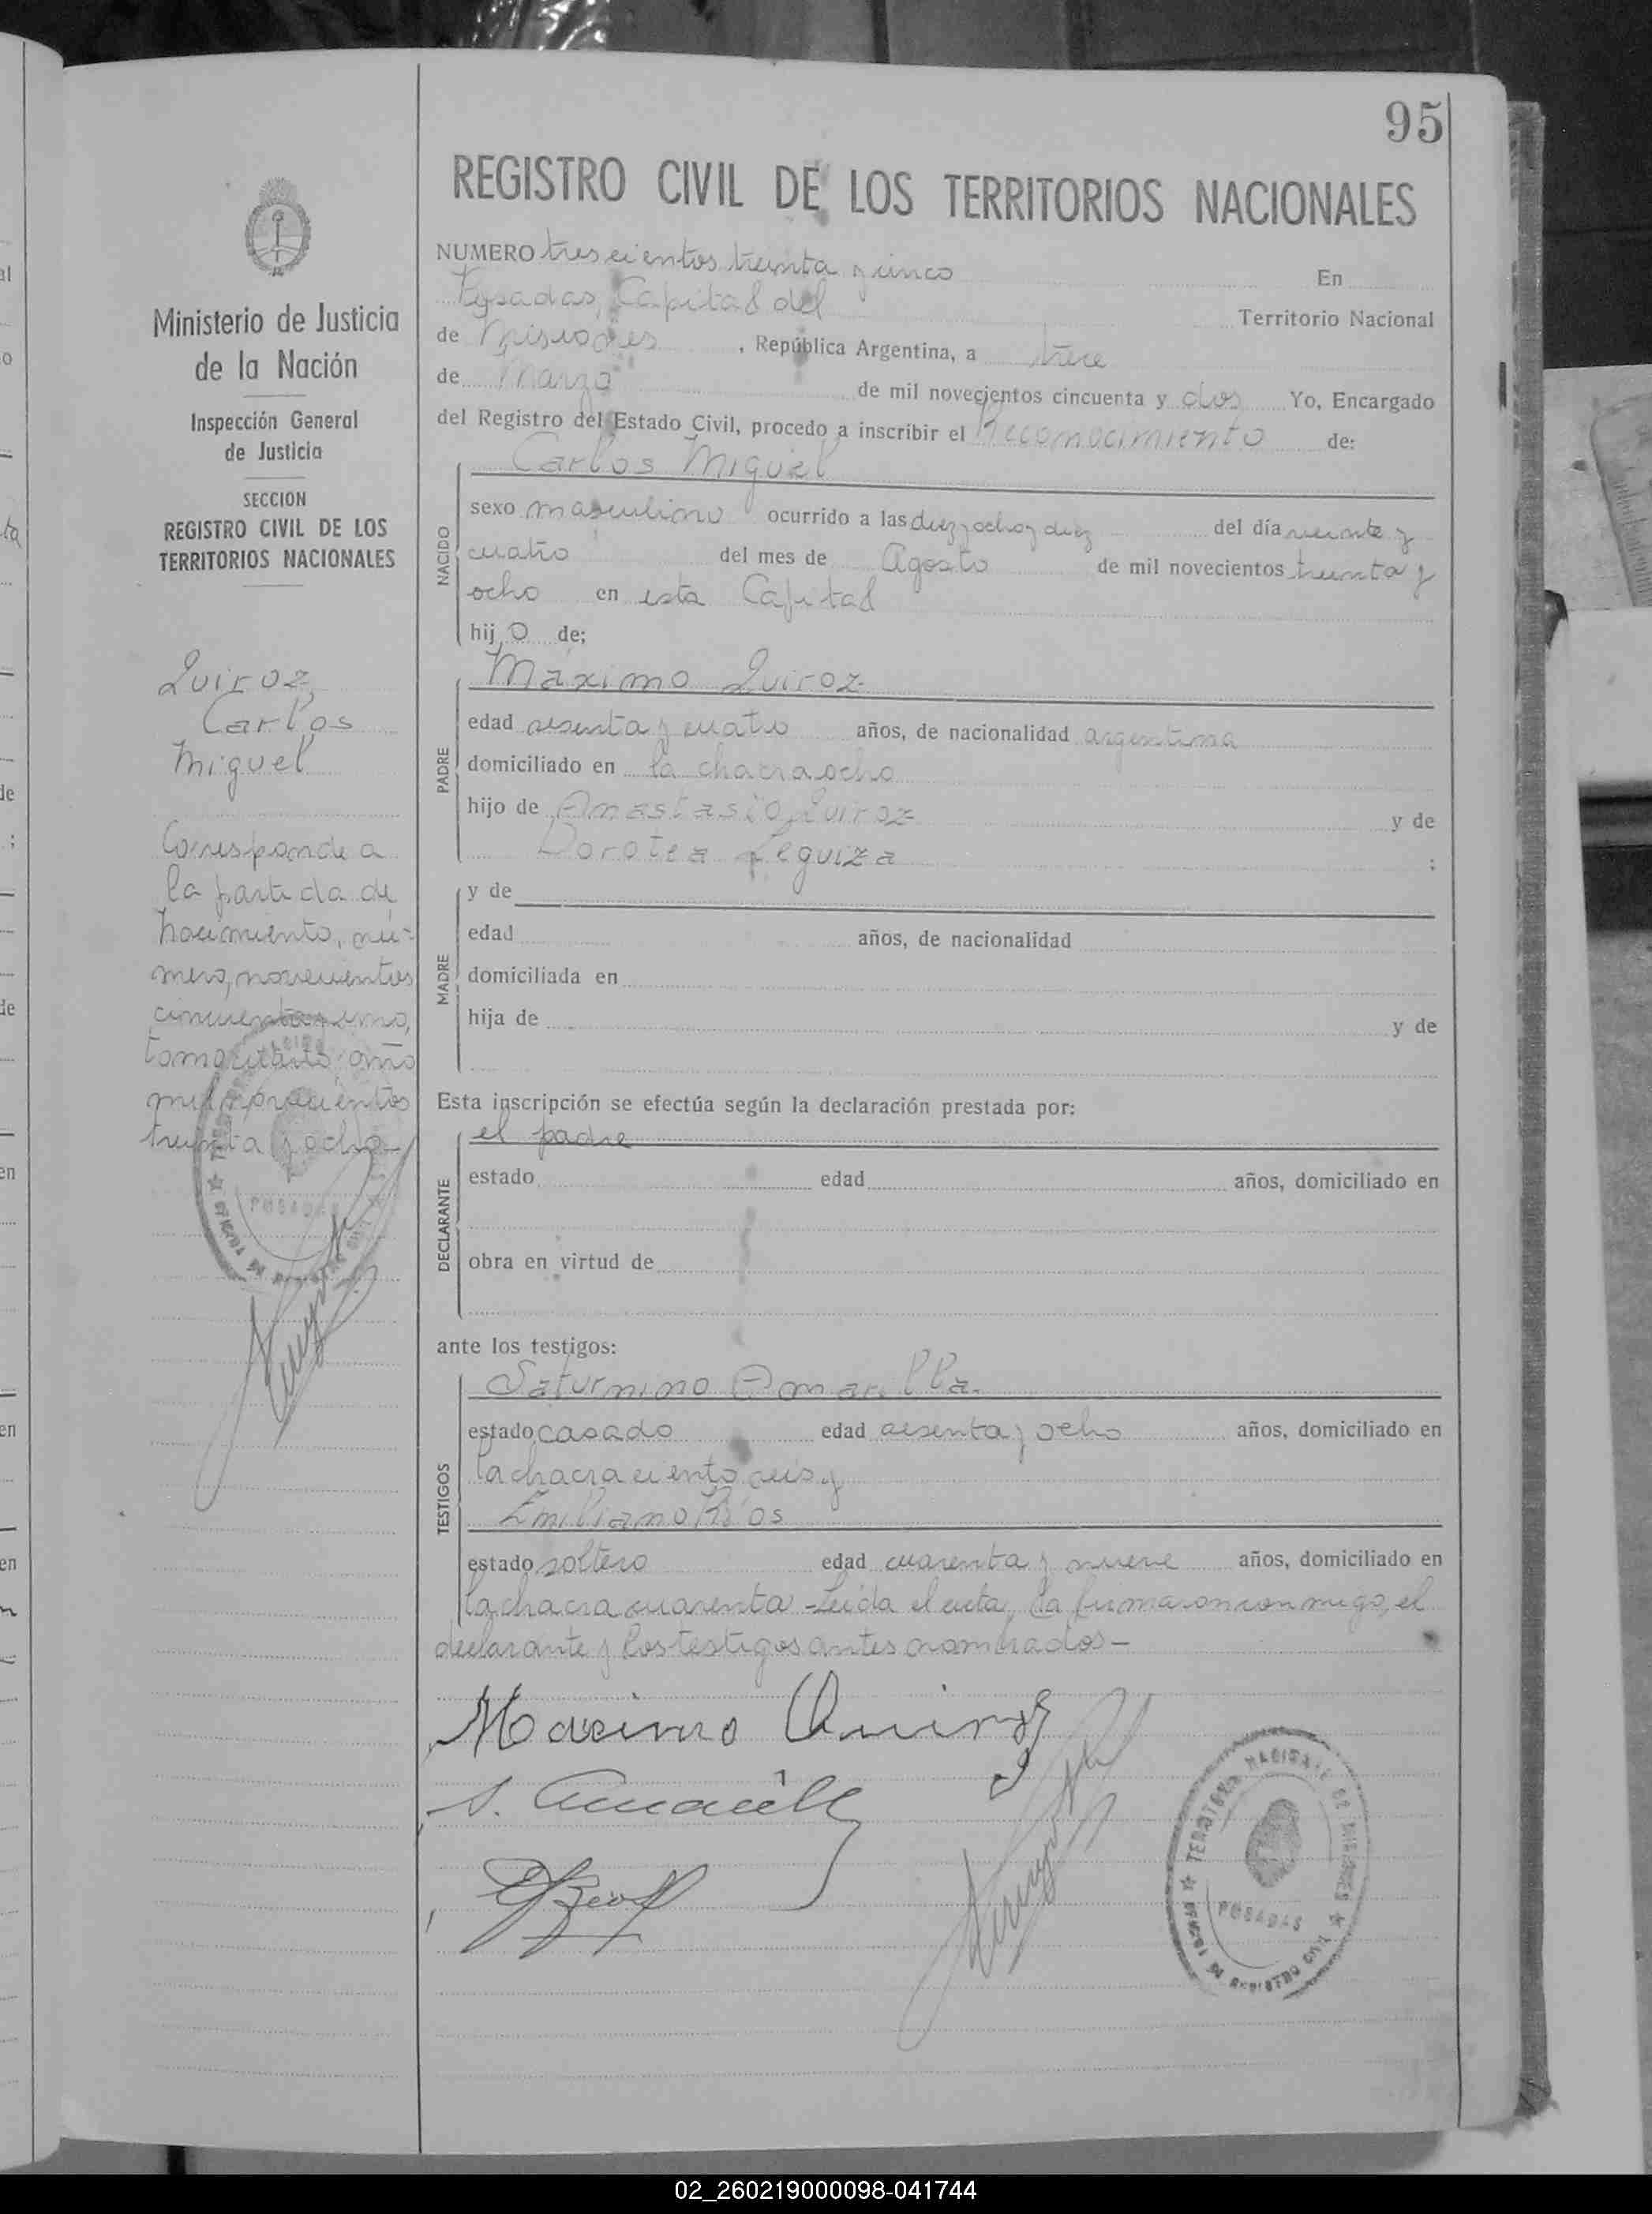 95
REGISTRO CIVIL DE LOS TERRITORIOS NACIONALES
Ministerio de Justicia
de la Nación
Inspección General
de Justicia
SECCION
REGISTRO CIVIL DE LOS
TERRITORIOS NACIONALES
Quiroz,
Carlos
Miguel
Corresponde a
la partida de
nacimiento, nú-
mero, novecientos
cincuenta y uno,
tomo cuarto, año
mil novecientos
treinta y ocho
POSADAS
NUMERO trescientos treinta y cinco En
Posadas, Capital del Territorio Nacional
de Misiones , República Argentina, a trece
de Marzo de mil novecientos cincuenta y dos Yo, Encargado
del Registro del Estado Civil, procedo a inscribir el Reconocimiento de:
Carlos Miguel
NACIDO
sexo masculino ocurrido a las diez y ocho y diez del día veinte y
cuatro del mes de Agosto de mil novecientos treinta y
ocho en esta Capital
hijo de;
Máximo Quiroz
PADRE
edad sesenta y cuatro años, de nacionalidad argentina
domiciliado en la chacra ocho
hijo de Anastasio Quiroz y de
Dorotea Leguiza ;
MADRE
y de
edad años, de nacionalidad
domiciliada en
hija de y de
Esta inscripción se efectúa según la declaración prestada por:
el padre
DECLARANTE
estado edad años, domiciliado en
obra en virtud de
ante los testigos:
Saturnino Amarilla
TESTIGOS
estado casado edad sesenta y ocho años, domiciliado en
la chacra ciento seis y
Emiliano Ríos
estado soltero edad cuarenta y nueve años, domiciliado en
la chacra cuarenta - Leída el acta, la firmaron conmigo, el
declarante y los testigos antes nombrados -
Maximo Quiroz
S. Amarilla
TERRITORIO NACIONAL DE MISIONES
POSADAS
OFICINA DE REGISTRO CIVIL
02_260219000098-041744